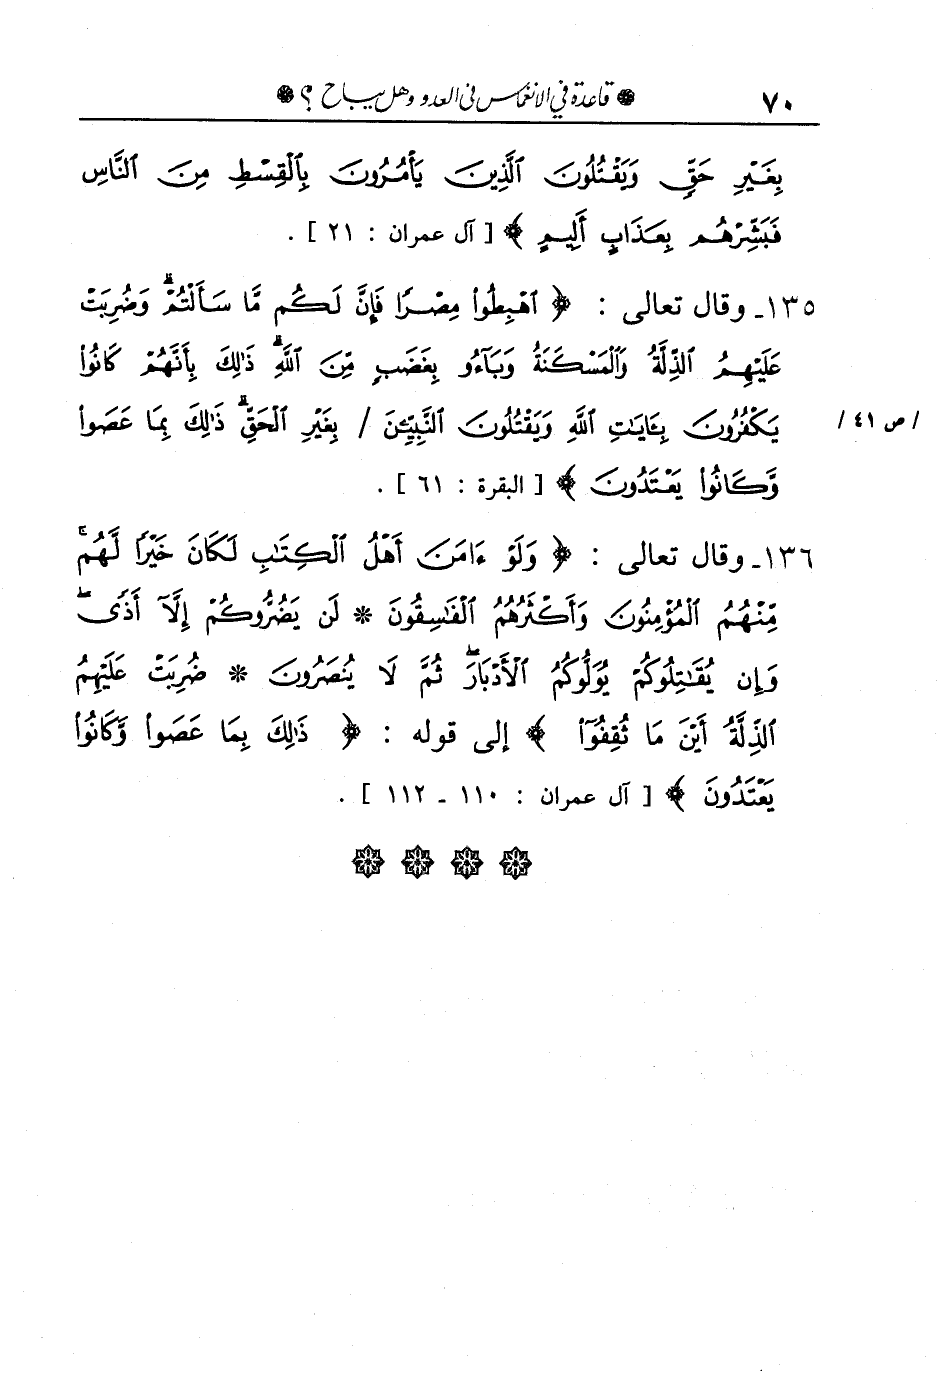 ٧٠ ❁ قاعدة في الانغماس في العدو وهل يباح ؟ ❁
بِغَيْرِ حَقٍّ وَيَقْتُلُونَ ٱلَّذِينَ يَأْمُرُونَ بِٱلْقِسْطِ مِنَ ٱلنَّاسِ
فَبَشِّرْهُم بِعَذَابٍ أَلِيمٍ ﴾ [ آل عمران : ٢١ ] .
١٣٥ـ وقال تعالى : ﴿ ٱهْبِطُوا۟ مِصْرًا فَإِنَّ لَكُم مَّا سَأَلْتُمْ ۗ وَضُرِبَتْ
عَلَيْهِمُ ٱلذِّلَّةُ وَٱلْمَسْكَنَةُ وَبَآءُو بِغَضَبٍ مِّنَ ٱللَّهِ ۗ ذَٰلِكَ بِأَنَّهُمْ كَانُوا۟
يَكْفُرُونَ بِـَٔايَـٰتِ ٱللَّهِ وَيَقْتُلُونَ ٱلنَّبِيِّـۧنَ / بِغَيْرِ ٱلْحَقِّ ۗ ذَٰلِكَ بِمَا عَصَوا۟ / ص ٤١ /
وَّكَانُوا۟ يَعْتَدُونَ ﴾ [ البقرة : ٦١ ] .
١٣٦ـ وقال تعالى : ﴿ وَلَوْ ءَامَنَ أَهْلُ ٱلْكِتَـٰبِ لَكَانَ خَيْرًا لَّهُم ۚ
مِّنْهُمُ ٱلْمُؤْمِنُونَ وَأَكْثَرُهُمُ ٱلْفَـٰسِقُونَ * لَن يَضُرُّوكُمْ إِلَّآ أَذًى ۖ
وَإِن يُقَـٰتِلُوكُمْ يُوَلُّوكُمُ ٱلْأَدْبَارَ ۖ ثُمَّ لَا يُنصَرُونَ * ضُرِبَتْ عَلَيْهِمُ
ٱلذِّلَّةُ أَيْنَ مَا ثُقِفُوٓا۟ ﴾ إلى قوله : ﴿ ذَٰلِكَ بِمَا عَصَوا۟ وَّكَانُوا۟
يَعْتَدُونَ ﴾ [ آل عمران : ١١٠ ـ ١١٢ ] .